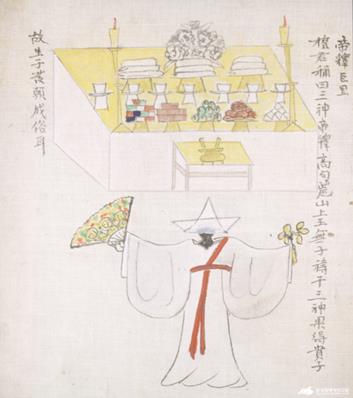 帝釋巨里
檀君稱曰三神帝釋高句麗山上王無子禱于三神果得貴子
故生子發願成俗耳